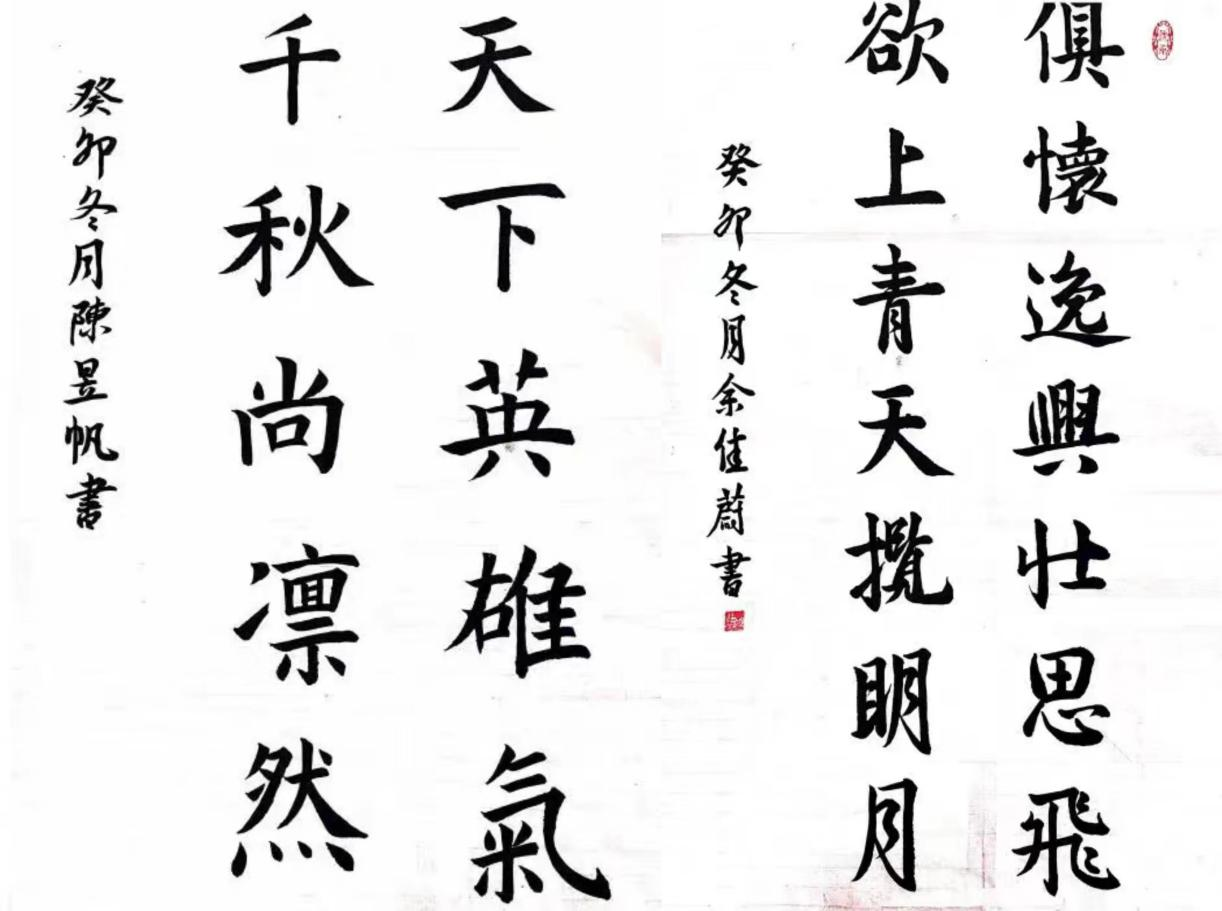 俱懷逸興壯思飛
欲上青天攬明月
癸卯冬月余佳蔚書
天下英雄氣
千秋尚凛然
癸卯冬月陳昱帆書